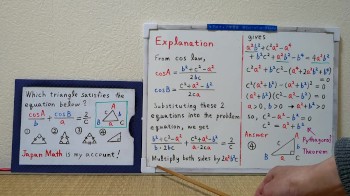 Which triangle satisfies the
equation below?
cosA/b + cosB/a = 2/c
A
b
c
C
a
B
① ② ③ ④
Japan Math is my account!
Explanation
From cos law,
cosA = b²+c²-a² / 2bc
cosB = c²+a²-b² / 2ca
Substituting these 2
equations into the problem
equation, we get
b²+c²-a² / b·2bc + c²+a²-b² / a·2ca = 2/c
Multiply both sides by 2a²b²c
gives
a²b²+c²a²-a⁴
+b²c²+a²b²-b⁴=4a²b²
=0
a>0, b>0 → a²+b²>0
so, c²-a²-b²=0
c²=a²+b²
Answer
④
A
b
c
C
a
B
Pythagorean
Theorem